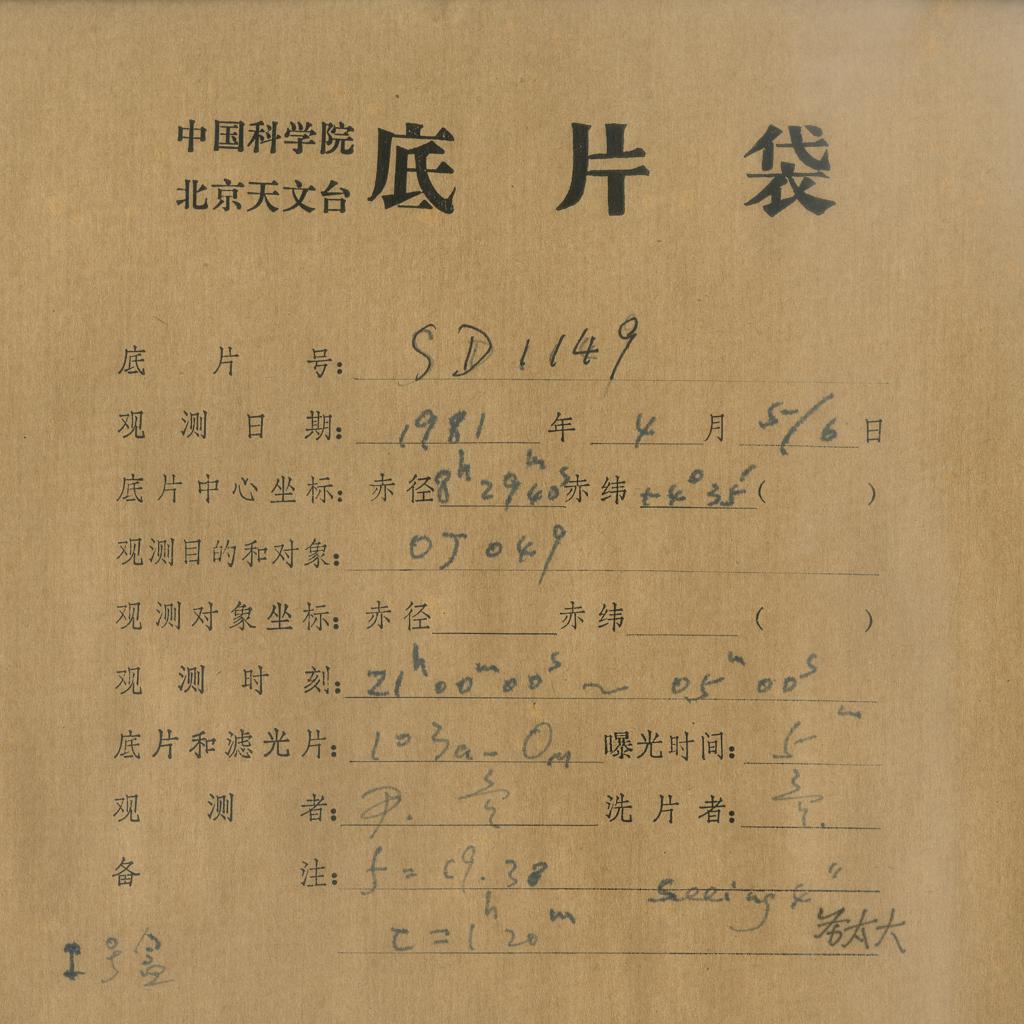 中国科学院
北京天文台
底片袋
底片号: SD1149
观测日期: 1981年4月5/6日
底片中心坐标: 赤径8h29m40s赤纬+4°35′( )
观测目的和对象: OJ 049
观测对象坐标: 赤径 赤纬 ( )
观测时刻: 21h00m00s ~ 05m00s
底片和滤光片: 103a-O 曝光时间: 5m
观测者: 尹. 洗片者:
备注: f = 19.38 seeing 4″
t = 1h20m 太大
I号盒